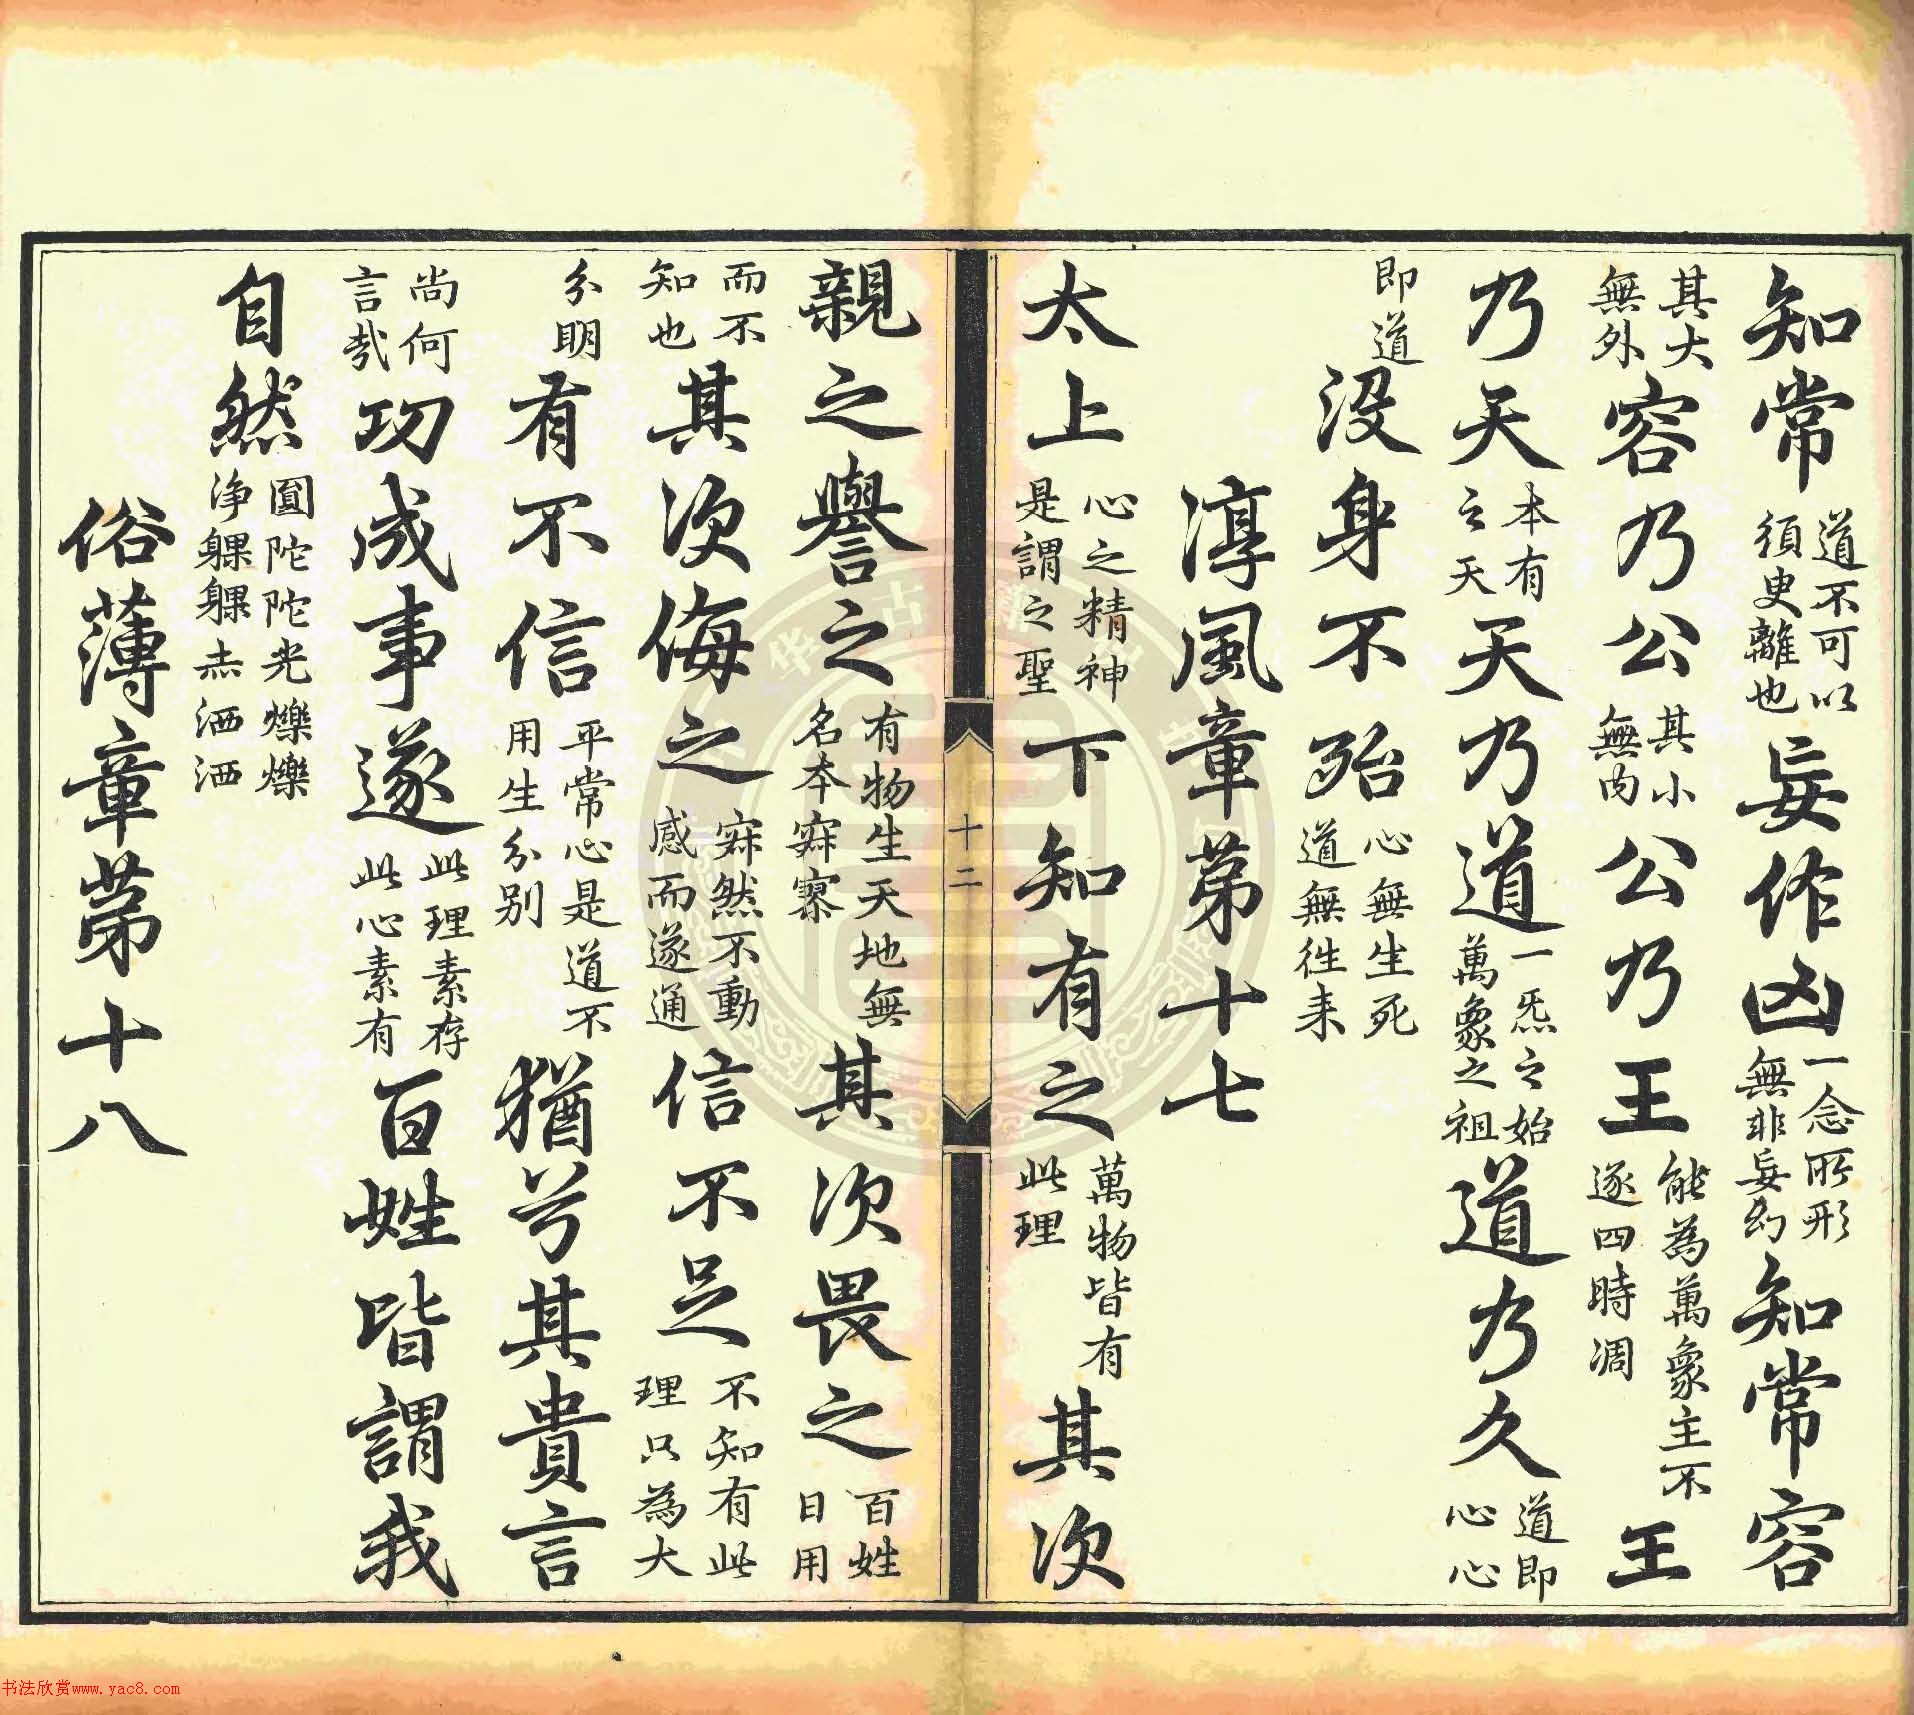 知常道不可以須臾離也妄作凶一念所形無非妄幻知常容
其大無外容乃公其小無內公乃王能為萬象主不逐四時凋王
乃天本有之天天乃道一炁之始萬象之祖道乃久道即心心
即道没身不殆心無生死道無往来
淳風章第十七
太上心之精神是謂之聖下知有之萬物皆有此理其次
十二
親之譽之有物生天地無名本寂寥其次畏之百姓日用
而不知也其次侮之寂然不動感而遂通信不足不知有此理只為大
分明有不信平常心是道不用生分別猶兮其貴言
尚何言哉功成事遂此理素存此心素有百姓皆謂我
自然圓陀陀光爍爍淨躶躶赤洒洒
俗薄章第十八
书法欣赏www.yac8.com